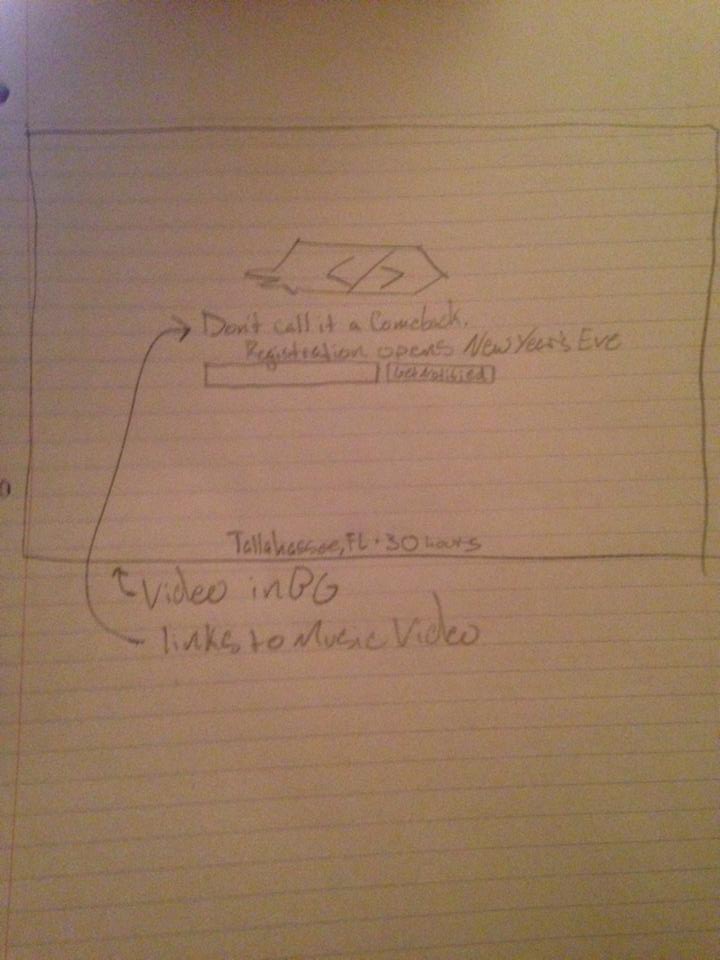 </>
Don't call it a Comeback.
Registration opens New Year's Eve
Get Notified
Tallahassee, FL · 30 hours
Video in BG
links to Music Video